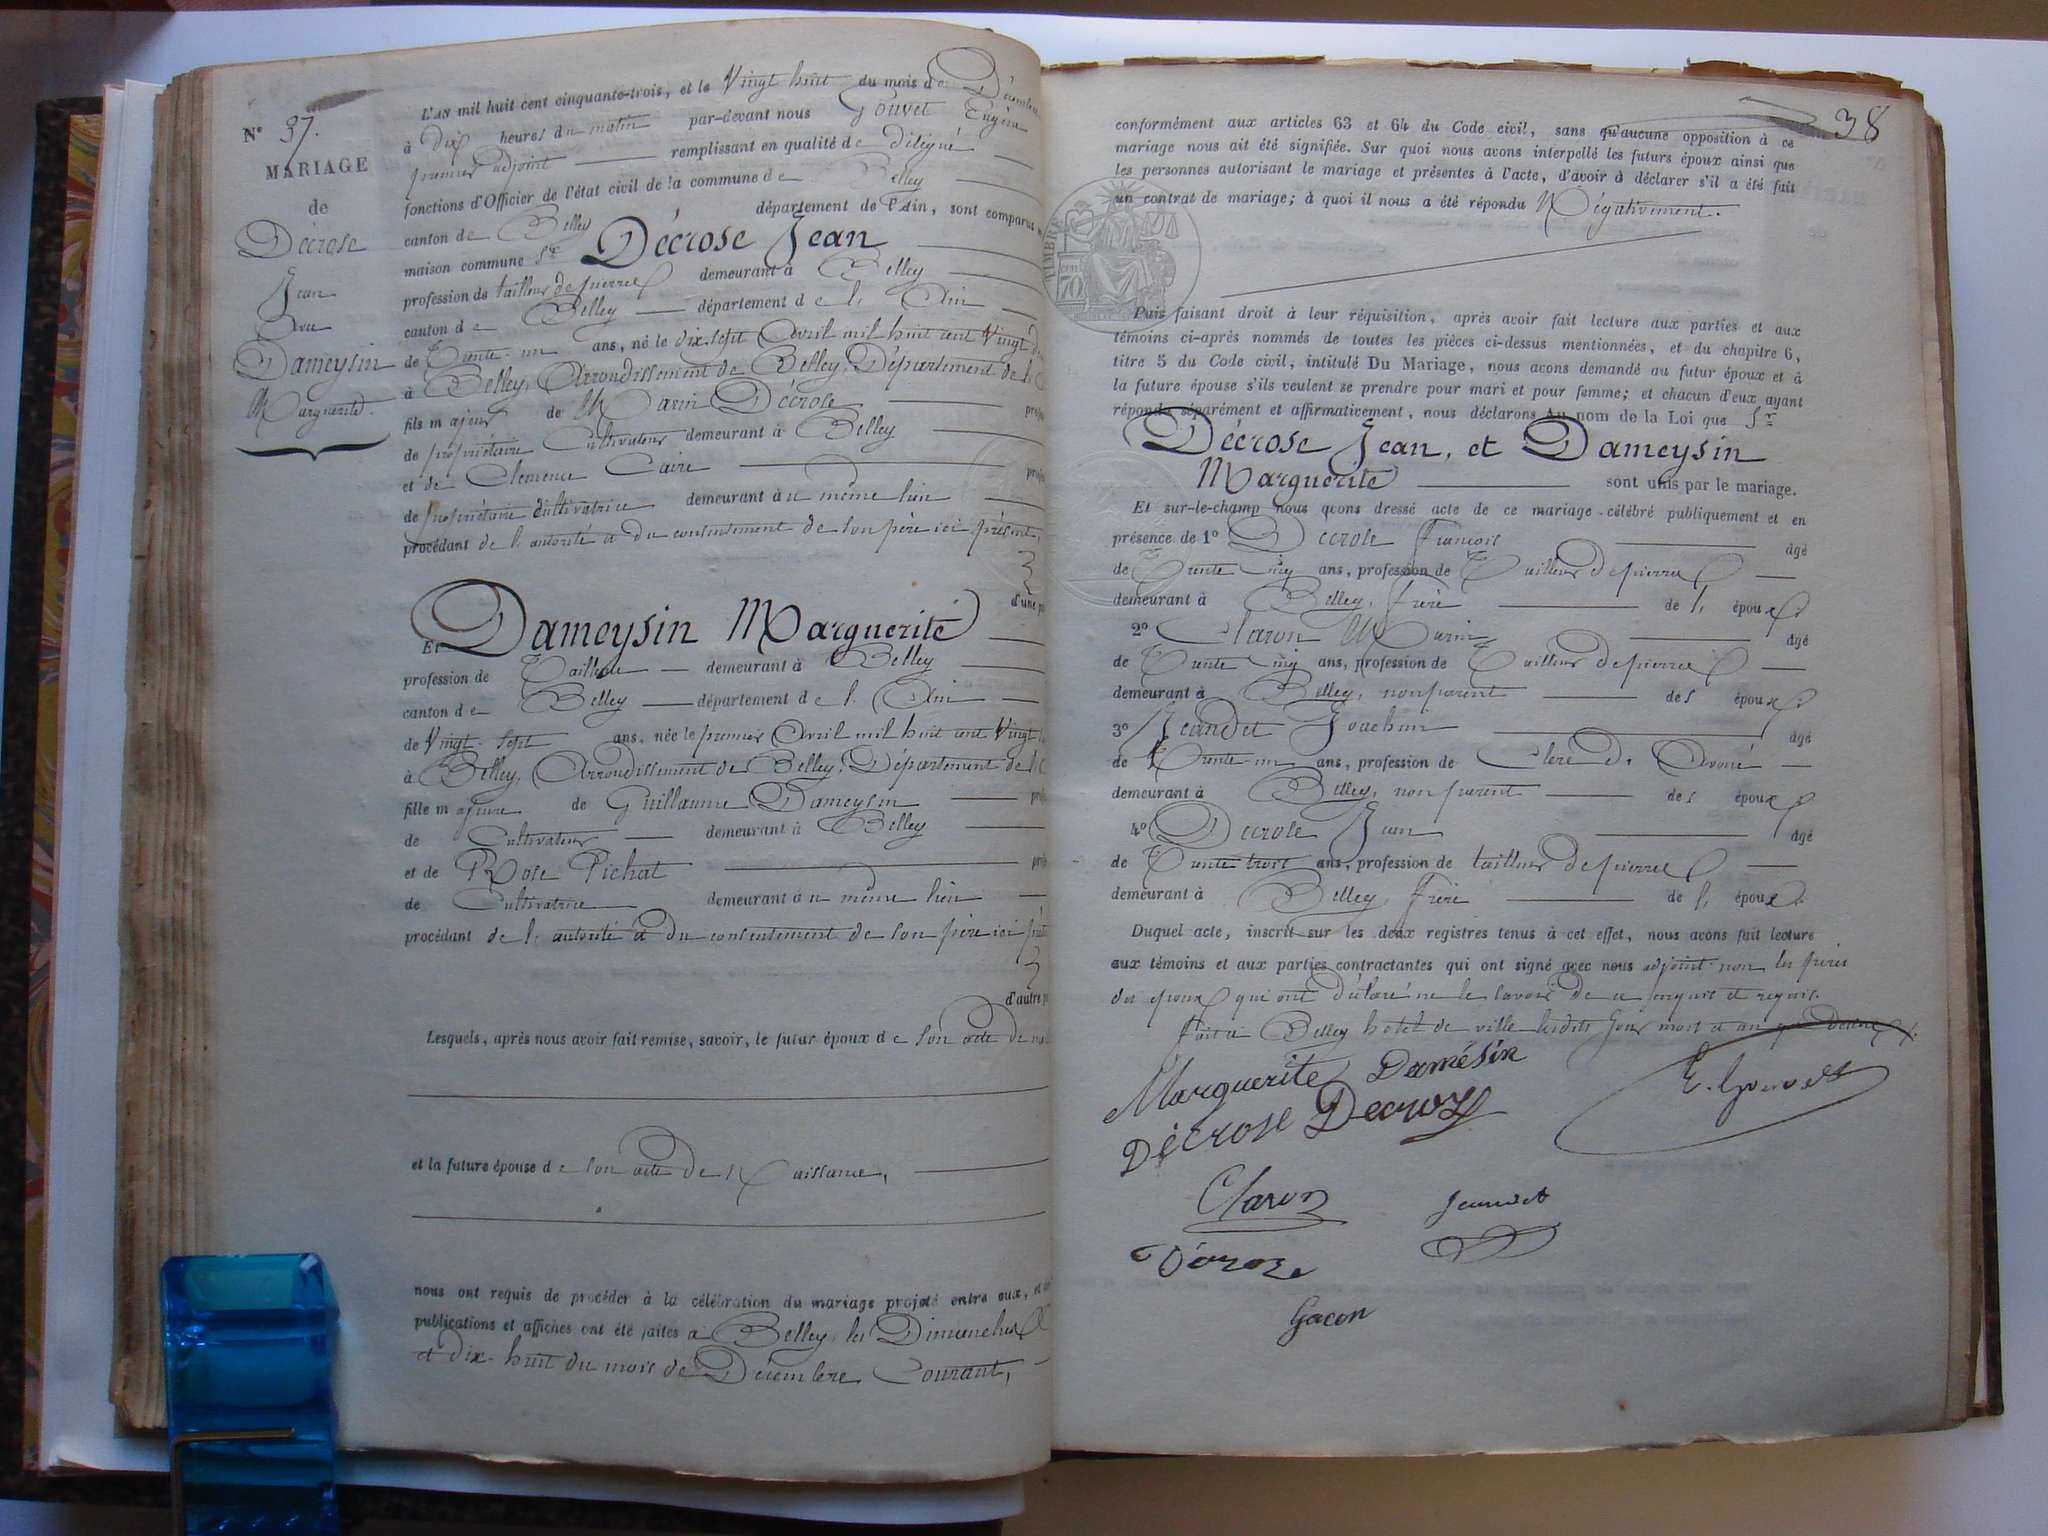 N° 37.
MARIAGE
de
Décrose
Jean
Avec
Dameysin
Marguerite.
L'AN mil huit cent cinquante-trois, et le Vingt huit du mois de Décembre
à Dix heures du matin par-devant nous Gouvet Eugène
premier adjoint remplissant en qualité de délégué
fonctions d'Officier de l'état civil de la commune de Belley
canton de Belley département de l'Ain, sont comparus
maison commune Sr Décrose Jean
profession de tailleur de pierres demeurant à Belley
canton de Belley département de l'Ain
de Trente-un ans, né le dix sept Avril mil huit cent Vingt
à Belley, Arrondissement de Belley, Département de l'
fils majeur de Marin Décrose
de propriétaire Cultivateur demeurant à Belley
et de Clemence Caire
de propriétaire Cultivatrice demeurant au même lieu
procédant de l'autorité et du consentement de son père ici présent,
d'une
Et Dameysin Marguerite
profession de Tailleuse demeurant à Belley
canton de Belley département de l'Ain
de Vingt-sept ans, née le premier Avril mil huit cent Vingt
à Belley, Arrondissement de Belley, Département de l'
fille majeure de Guillaume Dameysin
de Cultivateur demeurant à Belley
et de Rose Pichat
de Cultivatrice demeurant au même lieu
procédant de l'autorité et du consentement de son père ici
d'autre
Lesquels, après nous avoir fait remise, savoir, le futur époux de son acte de
et la future épouse de son acte de Naissance,
nous ont requis de procéder à la célébration du mariage projeté entre eux, et
publications et affiches ont été faites à Belley, les Dimanches
et dix-huit du mois de Décembre Courant,
38
conformément aux articles 63 et 64 du Code civil, sans qu'aucune opposition à ce
mariage nous ait été signifiée. Sur quoi nous avons interpellé les futurs époux ainsi que
les personnes autorisant le mariage et présentes à l'acte, d'avoir à déclarer s'il a été fait
un contrat de mariage; à quoi il nous a été répondu Négativement.
TIMBRE
70
Puis faisant droit à leur réquisition, après avoir fait lecture aux parties et aux
témoins ci-après nommés de toutes les pièces ci-dessus mentionnées, et du chapitre 6,
titre 5 du Code civil, intitulé Du Mariage, nous avons demandé au futur époux et à
la future épouse s'ils veulent se prendre pour mari et pour femme; et chacun d'eux ayant
répondu séparément et affirmativement, nous déclarons au nom de la Loi que Sr
Décrose Jean, et Dameysin
Marguerite sont unis par le mariage.
Et sur-le-champ nous avons dressé acte de ce mariage célébré publiquement et en
présence de 1° Décrose François âgé
de Trente cinq ans, profession de Tailleur de pierres
demeurant à Belley, frère de l' époux.
2° Claron Marin âgé
de Trente cinq ans, profession de Tailleur de pierres
demeurant à Belley, non parent des époux.
3° Jeandet Joachim âgé
de Trente-un ans, profession de Clerc d'Avoué
demeurant à Belley, non parent des époux
4° Décrose Jean âgé
de Trente trois ans, profession de tailleur de pierres
demeurant à Belley, frère de l' époux.
Duquel acte, inscrit sur les deux registres tenus à cet effet, nous avons fait lecture
aux témoins et aux parties contractantes qui ont signé avec nous adjoint non les pères
des époux qui ont déclaré ne le savoir de ce enquis et requis.
Fait à Belley hotel de ville lesdits jour mois et an que dessus.
Marguerite Damésin
Décrose Decroz
E. Gouvet
Claron
Jeandet
Décroze
Gacon